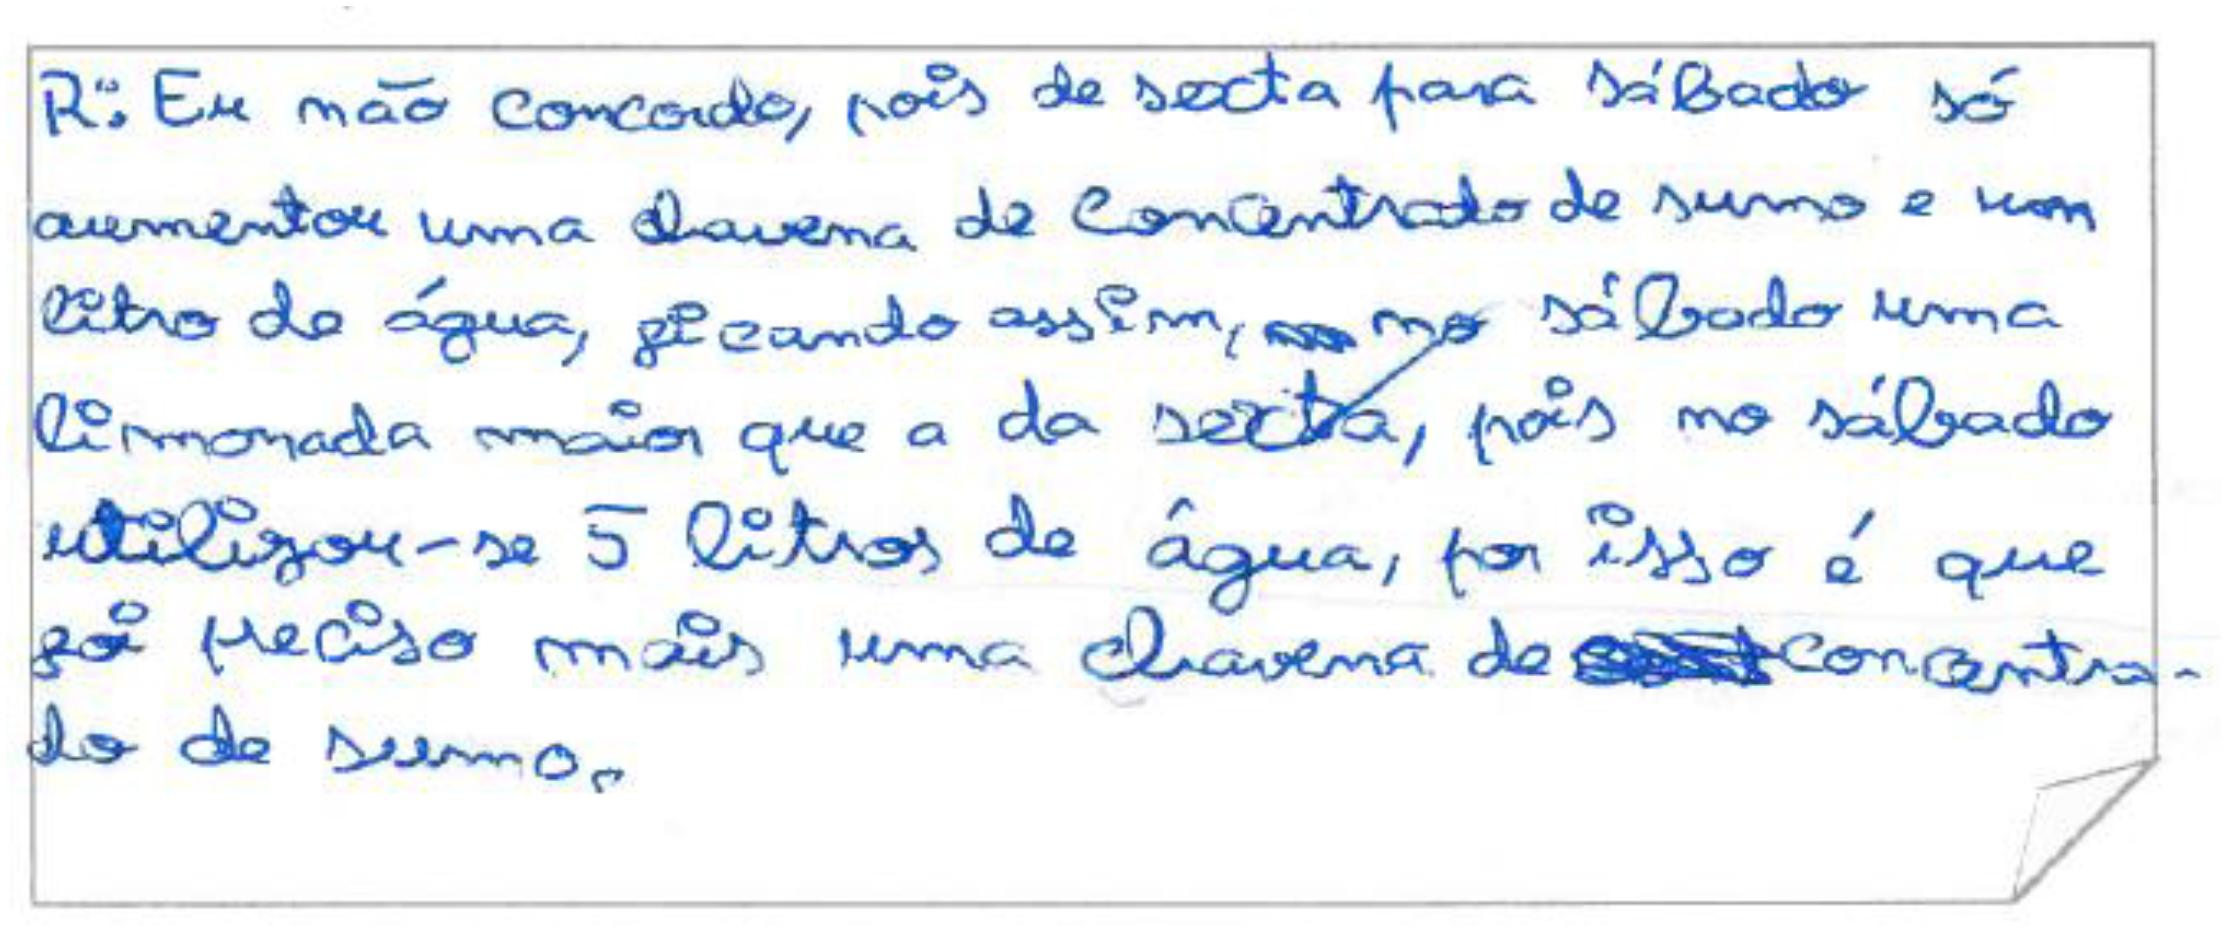 R: Eu não concordo, pois de sexta para sábado só
aumentou uma chavena de concentrado de sumo e um
litro de água, ficando assim, no sábado uma
limonada maior que a da sexta, pois no sábado
utilizou-se 5 litros de água, por isso é que
foi preciso mais uma chavena de concentra-
do de sumo.